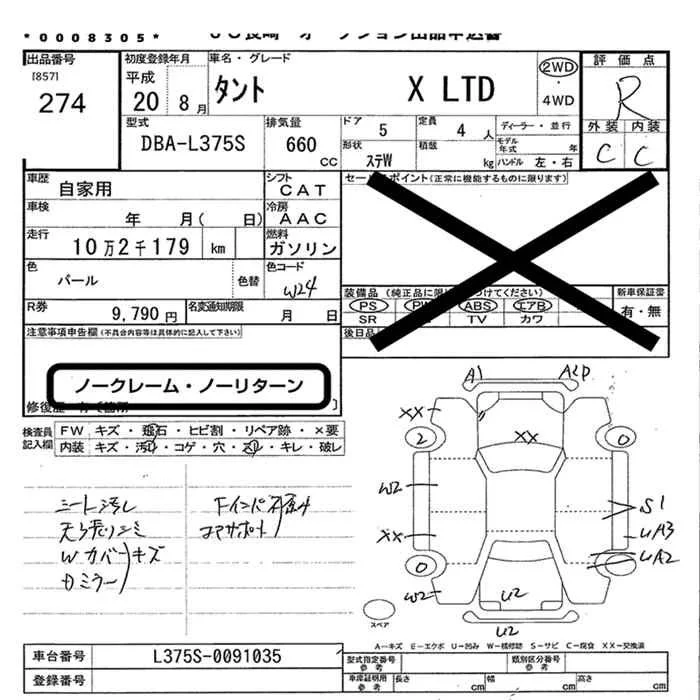 *0008305*
出品番号
[857]
274
初度登録年月
平成
20 8月
車名・グレード
タント X LTD
2WD
・
4WD
評価点
R
外装 内装
C C
型式
DBA-L375S
排気量
660 cc
ドア 5
定員 4 人
ディーラー・並行
モデル年式 年
形状 ステW
積載 kg
ハンドル 左・右
車歴
自家用
シフト
CAT
セー ポイント(正常に機能するものに限ります)
車検
年 月( 日)
冷房
AAC
走行
10万2千179 km
燃料
ガソリン
色
パール
色替
色コード
W24
装備品 (純正品に限 つけてください)
PS PW ABS エアB
SR TV カワ
新車保証書
有・無
R券
9,790円
名変通知期限
月 日
後日品
注意事項申告欄(不具合内容等は具体的に記入して下さい)
ノークレーム・ノーリターン
検査員記入欄
FW キズ・飛石・ヒビ割・リペア跡・×要
内装 キズ・汚れ・コゲ・穴・スレ・キレ・破レ
シート汚レ
天張りシミ
Wカバーキズ
Dミラー
コアサポート
A1
XX
XX
2
0
W2
S1
XX
UA3
UA2
0
W2
U2
U2
スペア
A―キズ E―エクボ U―凹み W―補修跡 S―サビ C―腐食 XX―交換済
車台番号
L375S-0091035
登録番号
型式指定番号
参考
類別区分番号
参考
車庫証明用
参考
長さ cm
幅 cm
高さ cm